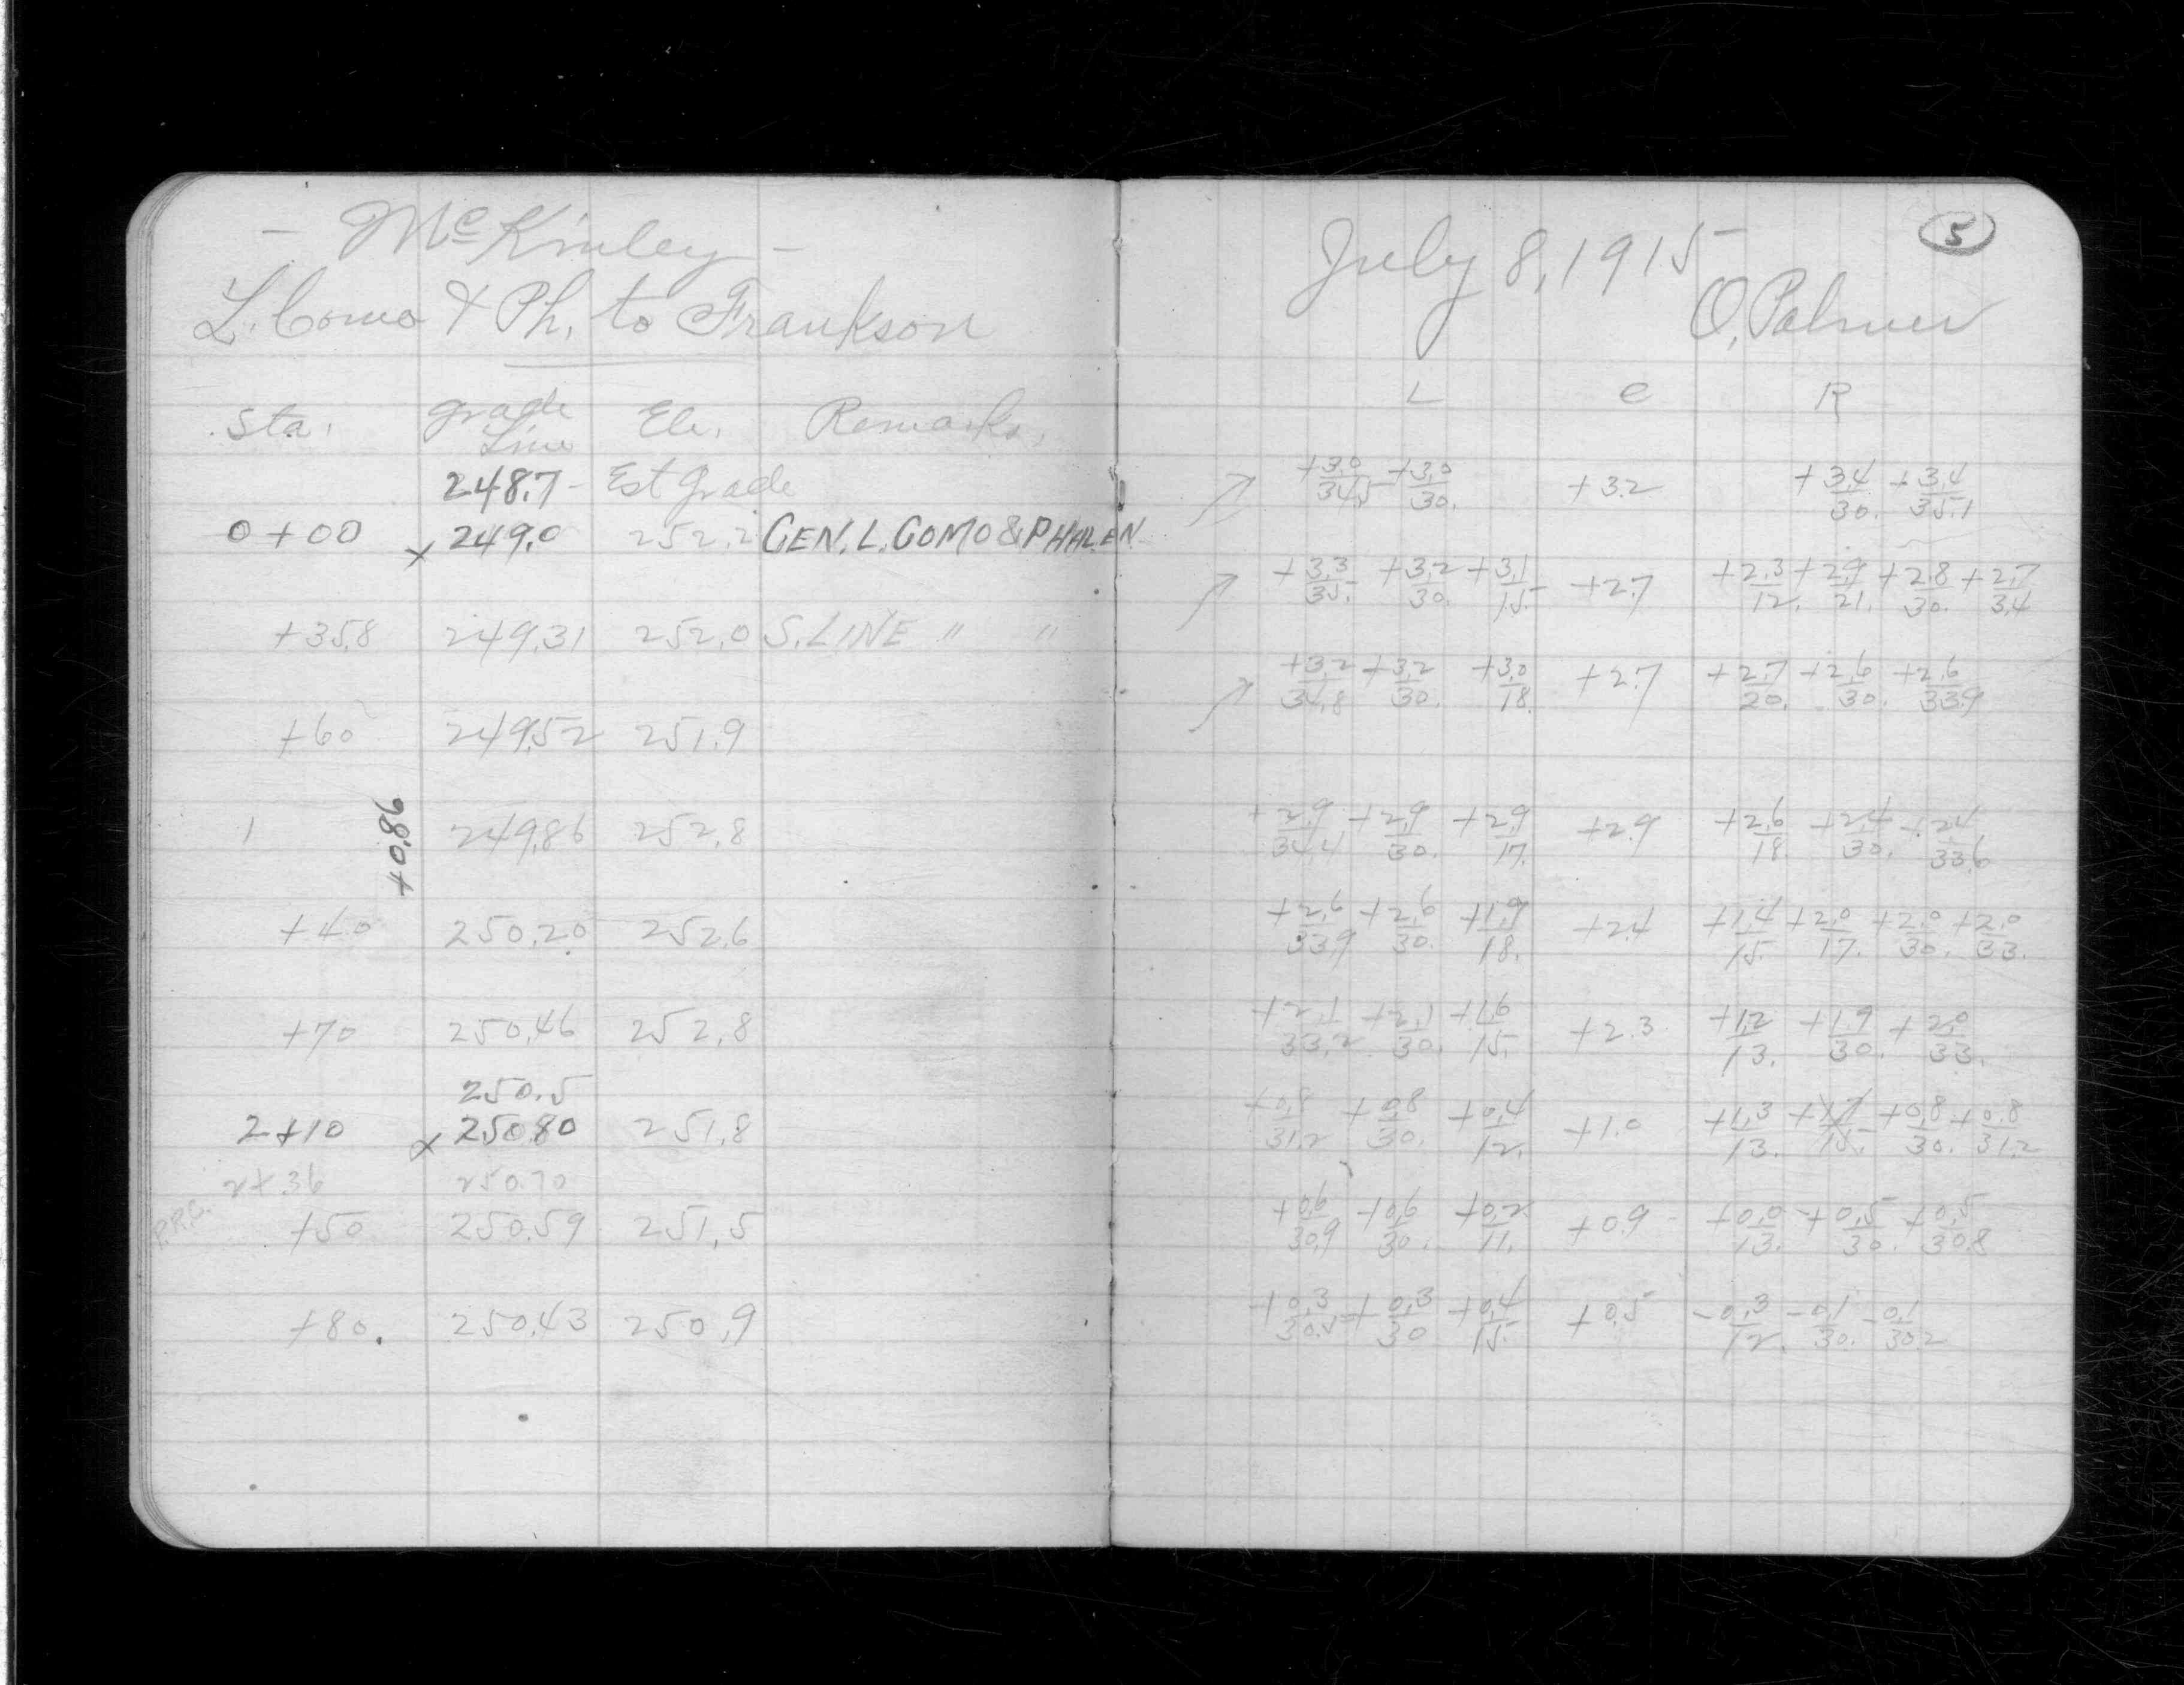 - McKinley -
L. Como & Ph. to Frankson
Sta. grade Line Ele. Remarks.
248.7 - Est Grade
0+00 x 249.0 252.2 CEN. L. COMO & PHALEN
+35.8 249.31 252.0 S. LINE " "
+60 249.52 251.9
1 249.86 252.8
+0.86
+40 250.20 252.6
+70 250.46 252.8
250.5
2+10 x 250.80 251.8
2+36 250.70
P.R.C.
+50 250.59 251.5
+80. 250.43 250.9
5
July 8, 1915
O. Palmer
L e R
+3.0/34.5 +3.0/30. +3.2 +3.4/30. +3.4/35.1
+3.3/35. +3.2/30. +3.1/15. +2.7 +2.3/12. +2.9/21. +2.8/30. +2.7/34
+3.2/34.8 +3.2/30. +3.0/18. +2.7 +2.7/20. +2.6/30. +2.6/33.9
+2.9/34.4 +2.9/30. +2.9/17. +2.9 +2.6/18. +2.4/30. +2.4/33.6
+2.6/33.9 +2.6/30. +1.9/18. +2.4 +1.4/15. +2.0/17. +2.0/30. +2.0/33.
+2.1/33.2 +2.1/30. +1.6/15. +2.3 +1.2/13. +1.9/30. +2.0/33.
+0.8/31.2 +0.8/30. +0.4/12. +1.0 +1.3/13. +1.7/15. +0.8/30. +0.8/31.2
+0.6/30.9 +0.6/30. +0.2/11. +0.9 +0.0/13. +0.5/30. +0.5/30.8
+0.3/30.5 +0.3/30 +0.4/15. +0.5 -0.3/12. -0.1/30. -0.1/30.2